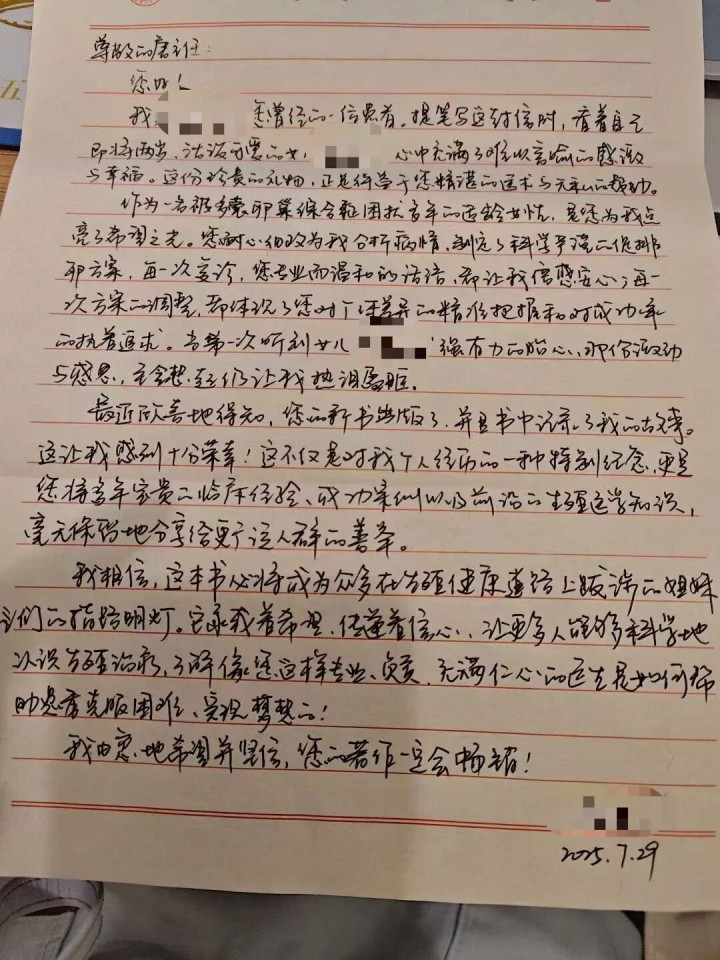 尊敬的唐主任:
您好!
我 您曾经的一位患者。提笔写这封信时,看着自己
即将两岁、活泼可爱的女 心中充满了难以言喻的感激
与幸福。这份珍贵的礼物,正是得益于您精湛的医术与无私的帮助。
作为一名被多囊卵巢综合征困扰多年的 女性,是您为我点
亮了希望之光。您耐心细致为我分析病情,制定了科学严谨的促排
卵方案,每一次复诊,您专业而温和的话语,都让我倍感安心;每一
次方案的调整,都体现了您对个体差异的精准把握和对成功率
的执着追求。当第一次听到女儿 强有力的胎心,那份激动
与感恩,至今想起仍让我热泪盈眶。
最近欣喜地得知,您的新书出版了,并且书中记录了我的故事。
这让我感到十分荣幸!这不仅是对我个人经历的一种特别纪念,更是
您将多年宝贵的临床经验、成功案例以及前沿的生殖医学知识,
毫无保留地分享给更广泛人群的善举。
我相信,这本书必将成为众多在生殖健康道路上跋涉的姐妹
们的指路明灯。它承载着希望,传递着信心,让更多人能够科学地
认识生殖治疗,了解像您这样专业、负责、充满仁心的医生是如何帮
助患者克服困难、实现梦想的!
我由衷地希望并坚信,您的著作一定会畅销!
2025.7.29
五